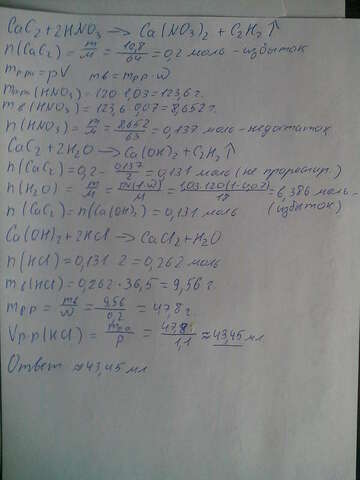 CaC₂ + 2HNO₃ → Ca(NO₃)₂ + C₂H₂ ↑
n(CaC₂) = m/M = 12,8/64 = 0,2 моль - избыток
m р-ра = ρV   mв = mрр · ω
m р-ра (HNO₃) = 120 · 1,03 = 123,6 г.
mв (HNO₃) = 123,6 · 0,07 = 8,652 г.
n(HNO₃) = m/M = 8,652/63 = 0,137 моль - недостаток
CaC₂ + 2H₂O → Ca(OH)₂ + C₂H₂ ↑
n(CaC₂) = 0,2 - 0,137/2 = 0,131 моль (не прореагир.)
n(H₂O) = m/M = m(1-ω)/M = 1,03·120(1-0,07)/18 = 6,386 моль - (избыток)
n(CaC₂) = n(Ca(OH)₂) = 0,131 моль
Ca(OH)₂ + 2HCl → CaCl₂ + H₂O
n(HCl) = 0,131 · 2 = 0,262 моль
mв(HCl) = 0,262 · 36,5 = 9,56 г.
mрр = mв/ω = 9,56/0,2 = 47,8 г.
Vр-р(HCl) = mрр/ρ = 47,8/1,1 ≈ 43,45 мл
Ответ ≈ 43,45 мл